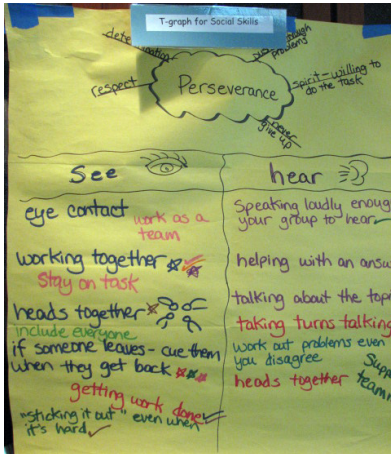 T-graph for Social Skills
problems
respect
Perseverance
spirit - willing to
do the task
never
give up
see
hear
eye contact
work as a
team
working together
Stay on task
heads together
include everyone
if someone leaves - cue them
when they get back
getting work done
"sticking it out" even when
it's hard
Speaking loudly enoug
your group to hear
helping with an answ
talking about the top
taking turns talking
work out problems even
you disagree
heads together
Supp
team